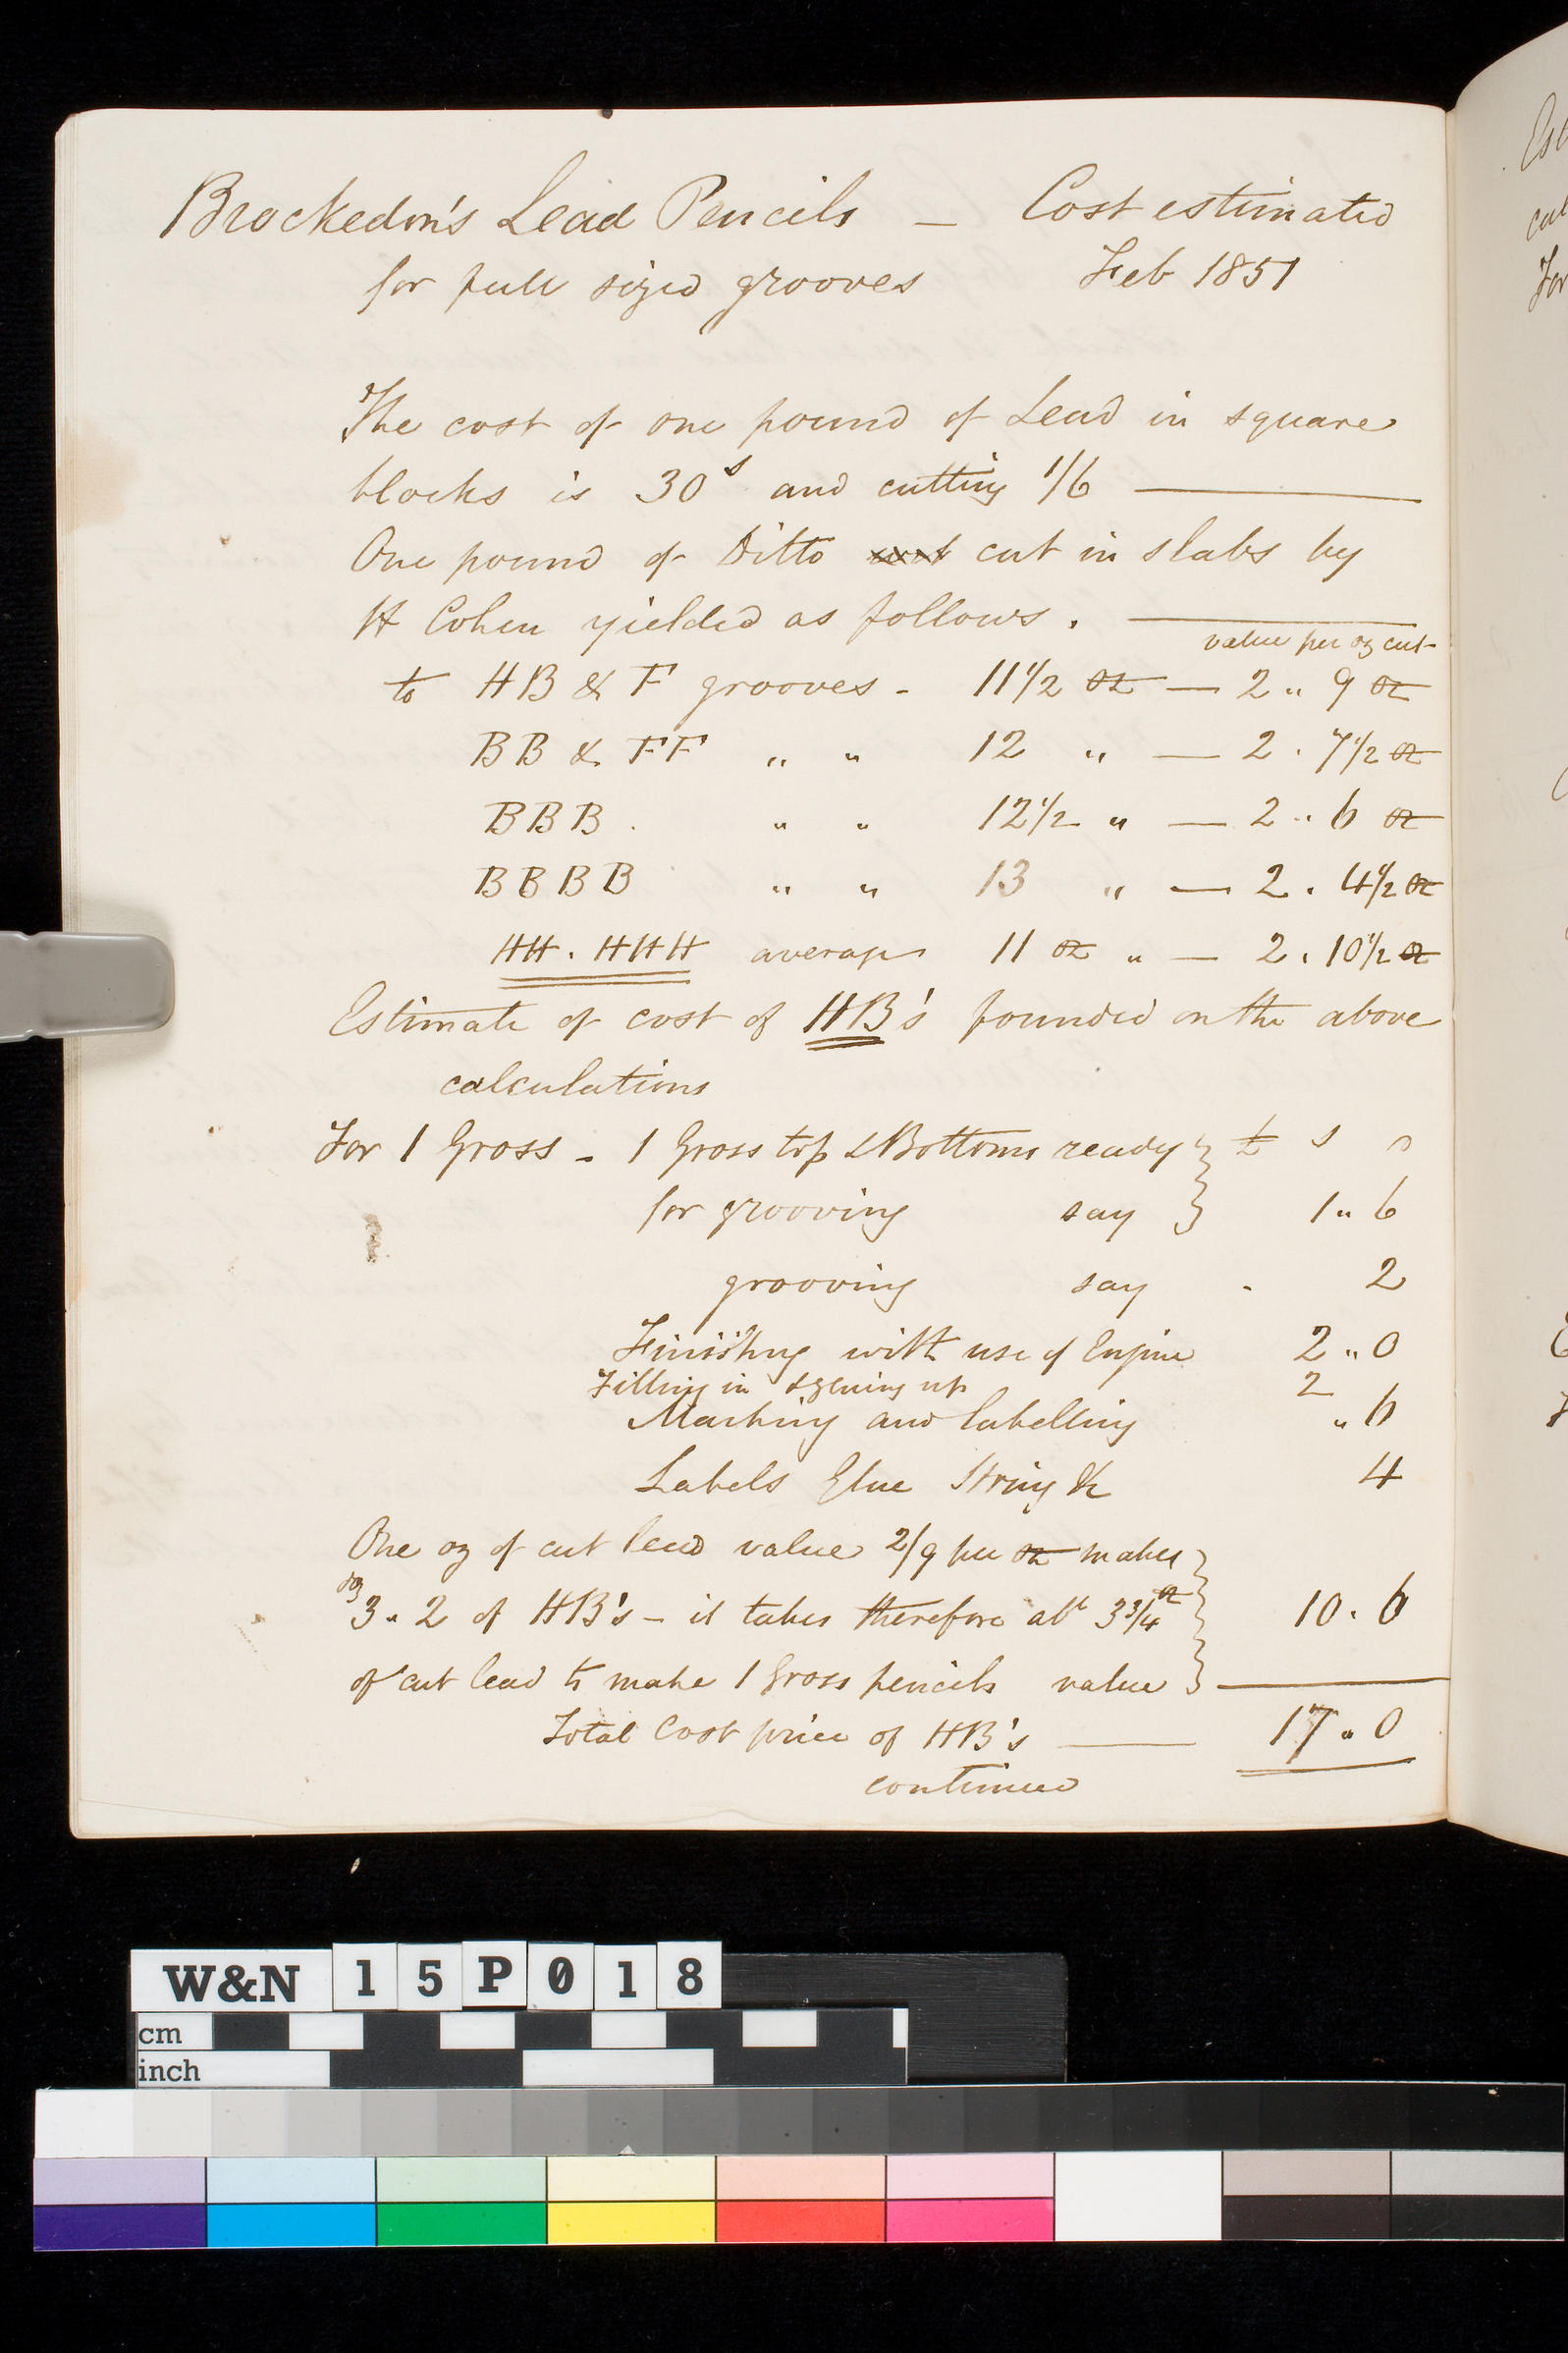 Brockedon's Lead Pencils — Cost estimated
for full sized grooves Feb 1851
The cost of one pound of Lead in square
blocks is 30s and cutting 1/6 —
One pound of Ditto cut in slabs by
H Cohen yielded as follows. —
value per oz cut
to HB & F grooves - 11 1/2 oz — 2 " 9 oz
BB & FF " " 12 " — 2 . 7 1/2 oz
BBB . " " 12 1/2 " — 2 " 6 oz
BBBB " " 13 " — 2 . 4 1/2 oz
HH . HHH average 11 oz " — 2 . 10 1/2 oz
Estimate of cost of HB's founded on the above
calculations
For 1 Gross - 1 Gross top & Bottoms ready £ s d
for grooving say 1 " 6
grooving say - 2
Finishing with use of Engine 2 " 0
Filling in & glueing up 2
Marking and labelling " 6
Labels Glue String &c 4
One oz of cut lead value 2/9 per oz makes
3 " 2 of HB's - it takes therefore abt 3 3/4 oz 10 . 6
of cut lead to make 1 Gross pencils value
Total Cost price of HB's — 17 " 0
continued
W&N 15P018
cm
inch